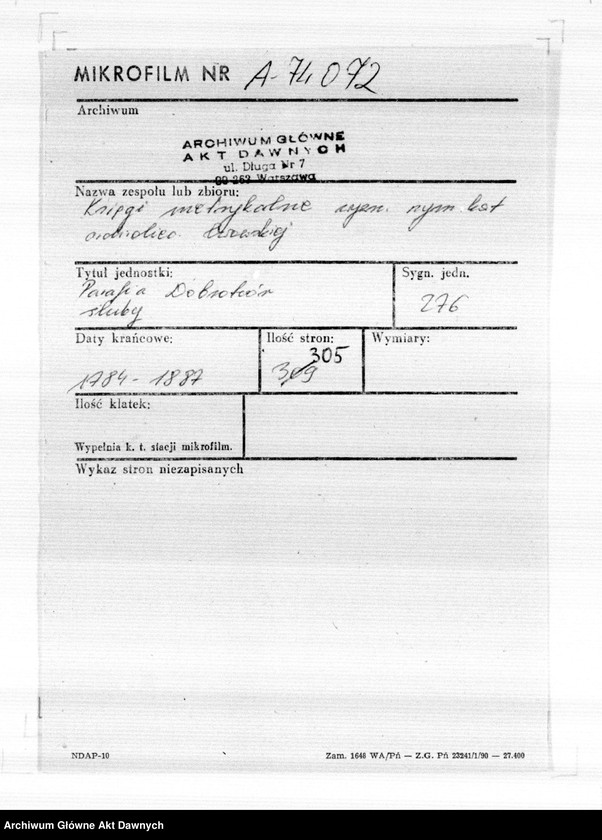 MIKROFILM NR A-74072
Archiwum
ARCHIWUM GŁÓWNE
AKT DAWNYCH
ul. Długa Nr 7
00-263 Warszawa
Nazwa zespołu lub zbioru:
Księgi metrykalne wyzn. rzym. kat
archidiec. lwowskiej
Tytuł jednostki:
Sygn. jedn.
Parafia Dobrotwór
śluby
276
Daty krańcowe:
Ilość stron:
Wymiary:
305
1784-1887
Ilość klatek:
Wypełnia k. t. stacji mikrofilm.
Wykaz stron niezapisanych
NDAP-10
Zam. 1648 WA/Pń — Z.G. Pń 23241/1/90 — 27.400
Archiwum Główne Akt Dawnych